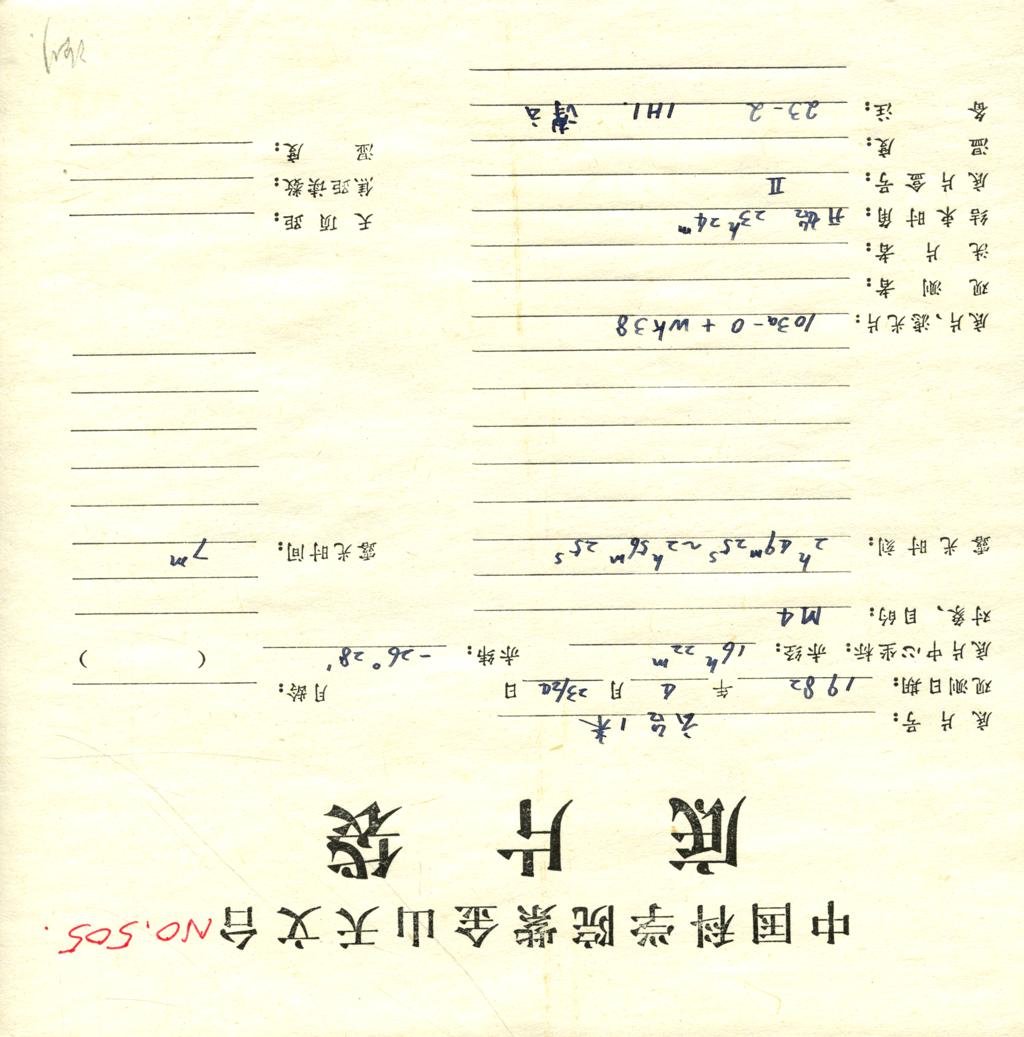 中国科学院紫金山天文台 NO.505.
底片袋
底片号: 云台1米
观测日期: 1982年4月23/24日 月龄:
底片中心坐标: 赤经: 16h22m 赤纬: -26°28′ ( )
对象、目的: M4
露光时刻: 2h49m25s~2h56m25s 露光时间: 7m
底片、滤光片: 103a-O + WK38
观测者:
洗片者:
结束时角: 开始 23h24m 天顶距:
底片盒号: II 焦距读数:
温度: 湿度:
备注: 23-2 1H1.